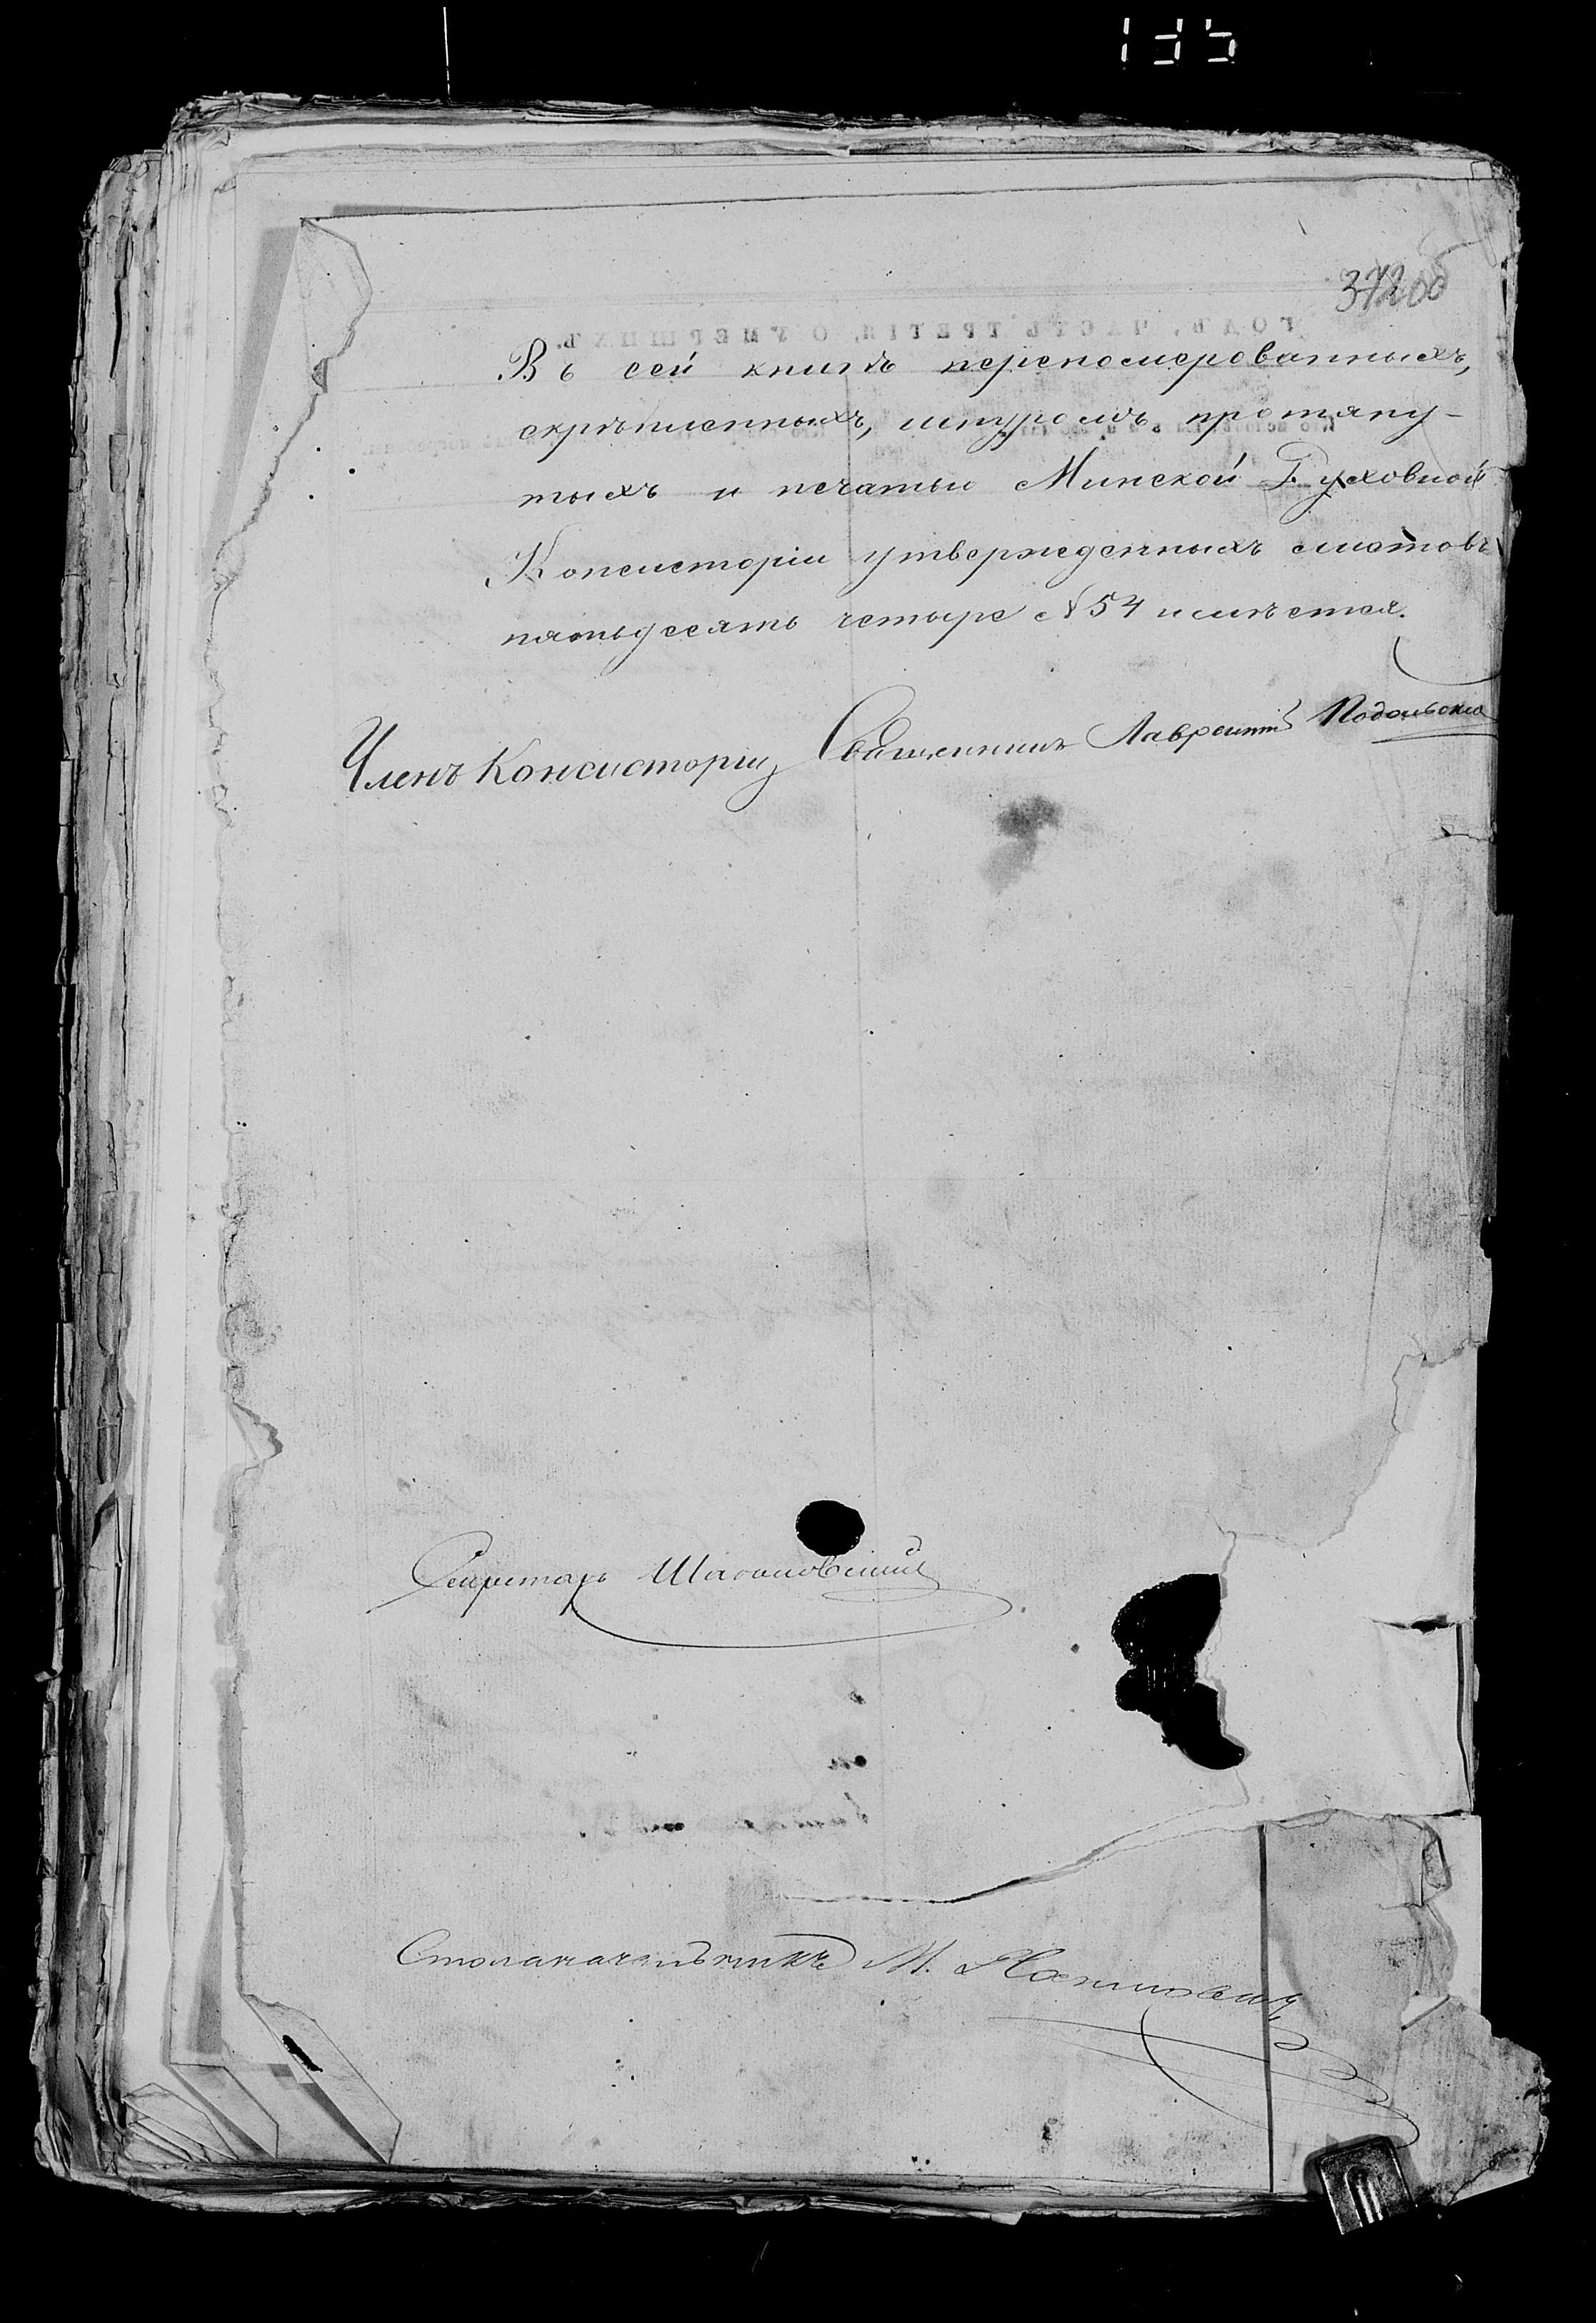 372об
Въ сей книгѣ перепомерованныхъ,
скрѣпленныхъ, шнуромъ протяну-
тыхъ и печатью Минской Духовной
Консисторіи утвержденныхъ листовъ
пятьдесятъ четыре №54 имѣется.
Членъ Консисторіи Священникъ Лаврентій Подольскій
Секретарь
Столоначальникъ М.